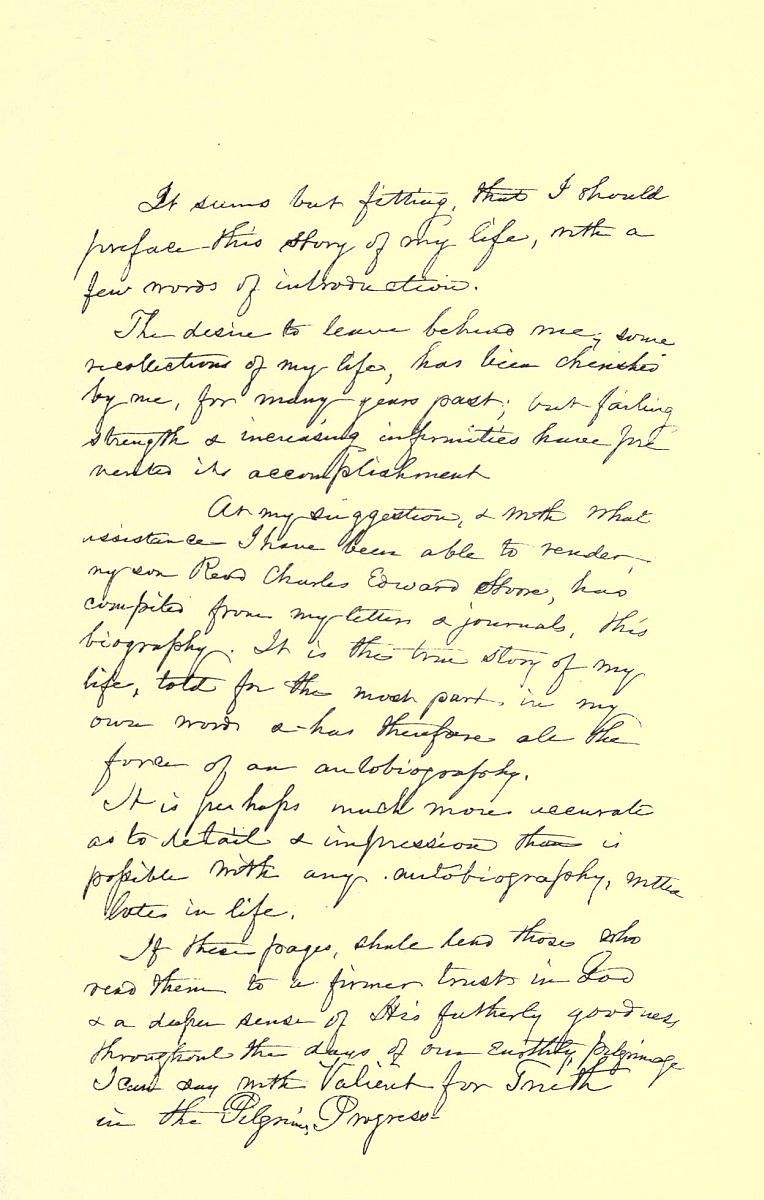 It seems but fitting, that I should
preface this story of my life, with a
few words of introduction.
The desire to leave behind me, some
recollections of my life, has been cherished
by me, for many years past; but failing
strength & increasing infirmities have pre
vented its accomplishment
At my suggestion, & with what
assistance I have been able to render,
my son Revd Charles Edward Stowe, has
compiled from my letters & journals, this
biography. It is the true story of my
life, told for the most part, in my
own words & has therefore all the
force of an autobiography.
It is perhaps much more accurate
as to detail & impression than is
possible with any autobiography, written
later in life.
If these pages, shall lead those who
read them to a firmer trust in God
& a deeper sense of His fatherly goodness
throughout the days of our Earthly pilgrimage
I can say with Valient for Truth
in the Pilgrims Progress